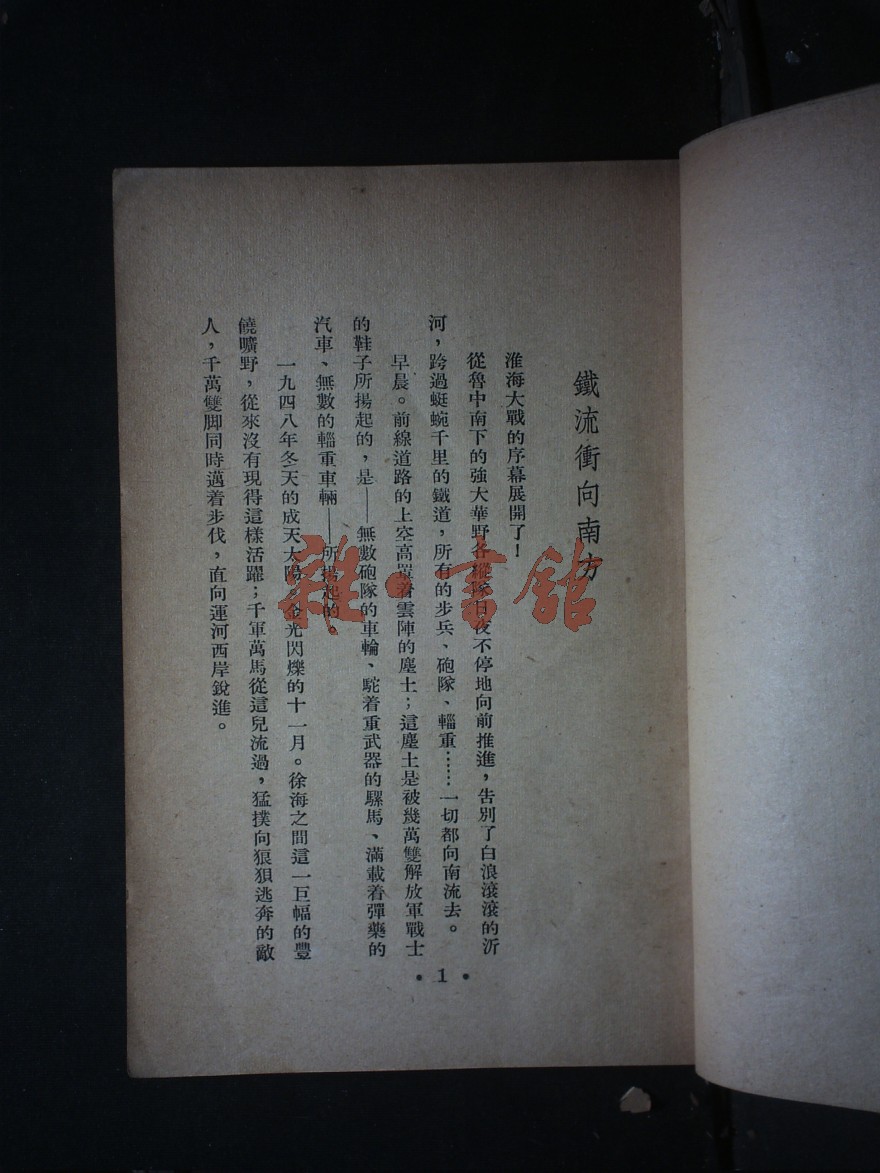 鐵流衝向南方
淮海大戰的序幕展開了！
從魯中南下的強大華野各縱隊日夜不停地向前推進，告別了白浪滾滾的沂
河，跨過蜓蜿千里的鐵道，所有的步兵、砲隊、輜重……一切都向南流去。
早晨。前線道路的上空高罩着雲陣的塵土；這塵土是被幾萬雙解放軍戰士
的鞋子所揚起的，是——無數砲隊的車輪、駝着重武器的騾馬、滿載着彈藥的
汽車、無數的輜重車輛——所揚起的。
一九四八年冬天的成天太陽，金光閃爍的十一月。徐海之間這一巨幅的豐
饒曠野，從來沒有現得這樣活躍；千軍萬馬從這兒流過，猛撲向狼狽逃奔的敵
人，千萬雙脚同時邁着步伐，直向運河西岸銳進。
• 1 •
雜·書館